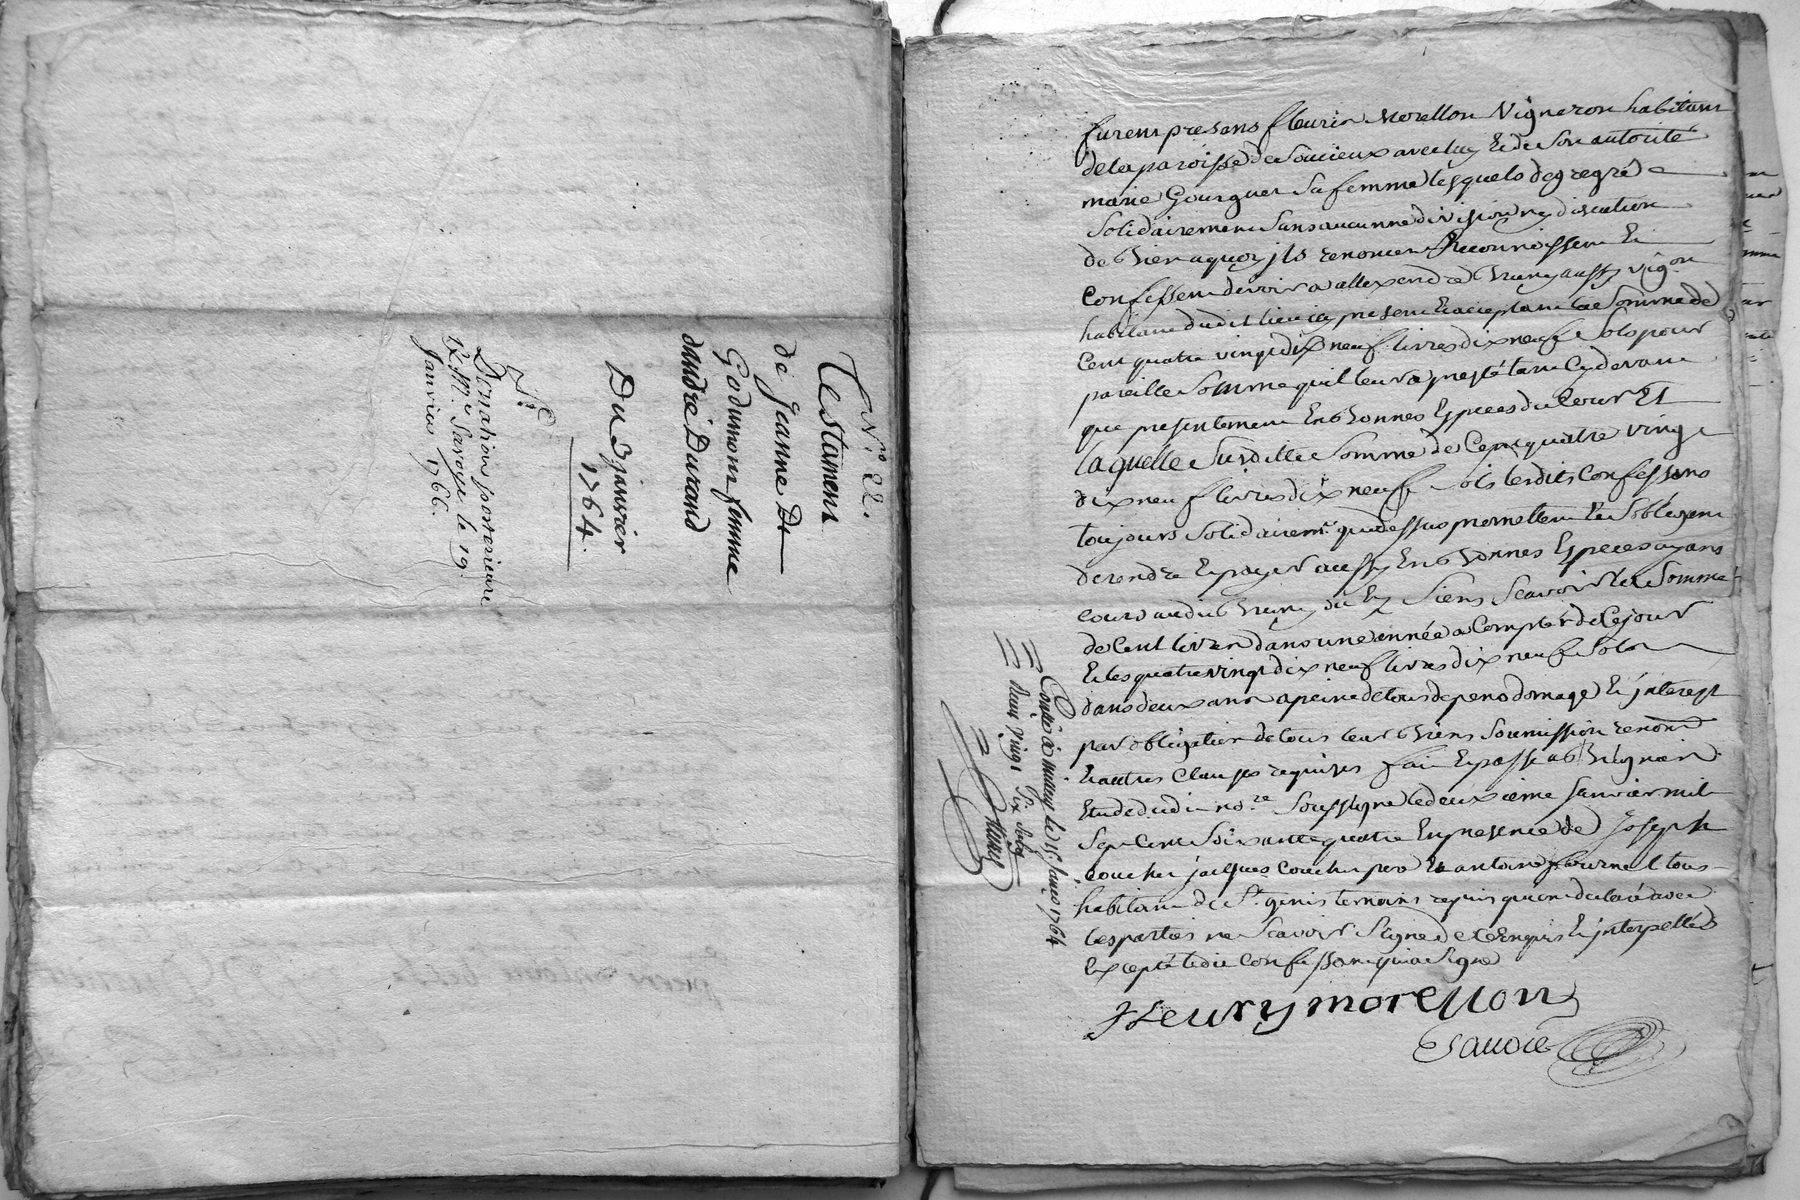 N.º 22.
Testament
de Jeanne Dt
Godumont femme
d'andré Durand
Du 3 janvier
1764.
Donation posterieure
Me Savoye le 19.
Janvier 1766.
furent presans fleurie Morellon Vigneron habitant
de la paroisse de Soucieux avec luy et de son autorité
marie Gourguet sa femme lesquels de gré a gré
solidairement sans aucunne division ny discution
de bien a quoy ils renoncent reconnoissent et
confessent devoir a allexendre Bruny aussy vigon
habitant dudit lieu icy present et aceptant la somme de
Cent quatre vingt dix neuf livres dix neuf sols pour
pareille somme quil leur a presté tant cy devant
que presentement en bonnes especes du cour Et
laquelle susditte somme de Cent quatre vingt
dix neuf livres dix neuf sols lesdits confessans
toujours solidairemt. que dessus promettent et s'obligent
de rendre et payer aussy en bonnes especes ayans
cours audit Bruny ou es siens scavoir la somme
de Cent livres dans une année a compter de Ce jour
et les quatre vingt dix neuf livres dix neuf sols
dans deux ans a peine de tous depens domage et interest
par obligation de tous leur biens soumission renond
et autres clauses requises fait et passé a Brignais
Etude dudit no.re soussigné le deuxieme janvier mil
sept cent soixante quatre en presence de joseph
couchet jacques couchet pero et antoine fournel tous
habitant de St. genis temoins requis qui ont declaré avec
les parties ne scavoir signé de ce enquis et interpellés
excepté ledit confessant qui a signé
fleury morellon
Savoie
Conllé à millery le 15. janer 1764
Reçu vingt six sols